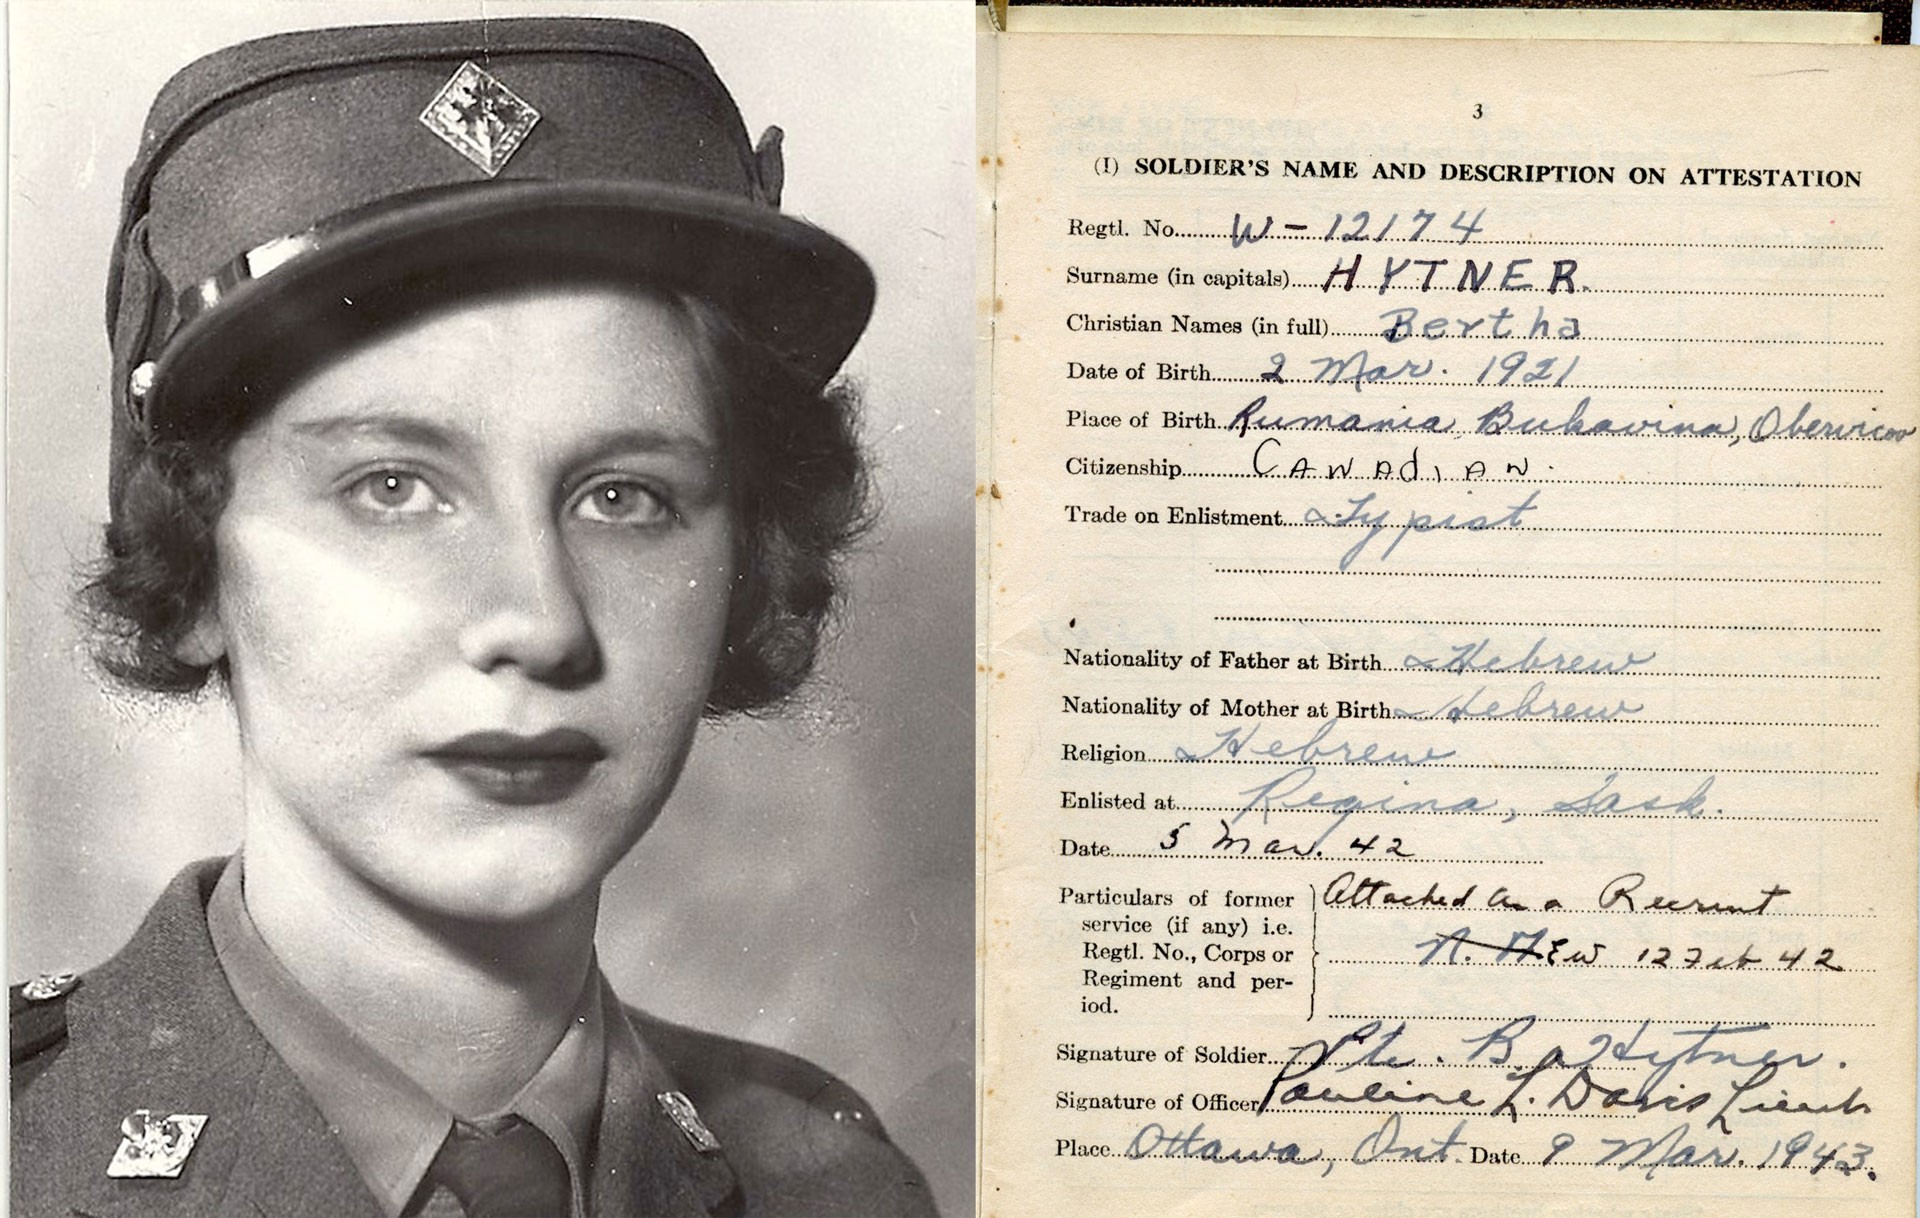 3
(I) SOLDIER'S NAME AND DESCRIPTION ON ATTESTATION
Regtl. No. W-12174
Surname (in capitals) HYTNER.
Christian Names (in full) Bertha
Date of Birth 2 Mar. 1921
Place of Birth Rumania Bukavina, Oberwicov
Citizenship CANADIAN.
Trade on Enlistment Typist
Nationality of Father at Birth Hebrew
Nationality of Mother at Birth Hebrew
Religion Hebrew
Enlisted at Regina, Sask.
Date 5 Mar. 42
Particulars of former Attached as a Recruit
service (if any) i.e.
Regtl. No., Corps or 12 Feb 42
Regiment and per-
iod.
Signature of Soldier Pte. B Hytner.
Signature of Officer Pauline L. Davis Lieut
Place Ottawa, Ont. Date 9 Mar. 1943.